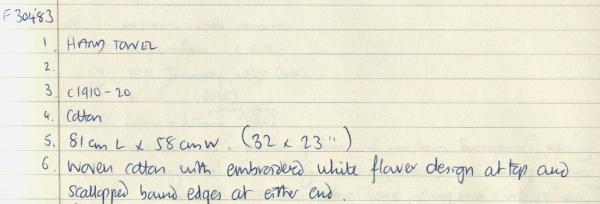 F30483
1. HAND TOWEL
2.
3. c1910-20
4. Cotton
5. 81cm L x 58cm W. (32 x 23")
6. Woven cotton with embroidered white flower design at top and
scalloped bound edges at either end.